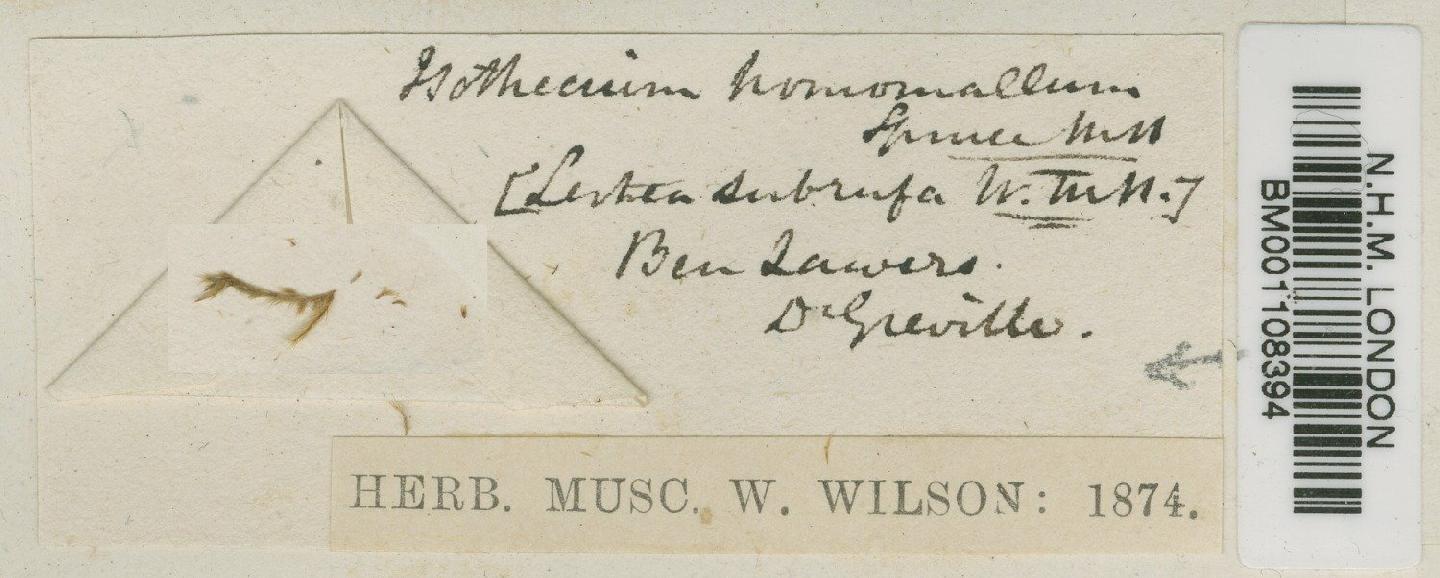 Isothecium homomallum
Spruce MSS
[Leskea subrufa W. MSS.]
Ben Lawers.
Dr Greville.
HERB. MUSC. W. WILSON: 1874.
N.H.M. LONDON
BM001108394